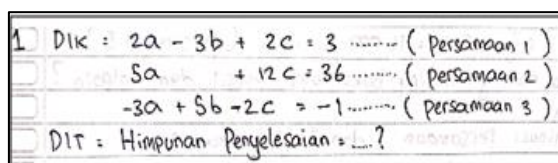 1 DIK : 2a - 3b + 2c = 3 ........ ( Persamaan 1 )
5a + 12c = 36 ...... ( Persamaan 2 )
-3a + 5b - 2c = -1 ........ ( Persamaan 3 )
DIT : Himpunan Penyelesaian = ....?